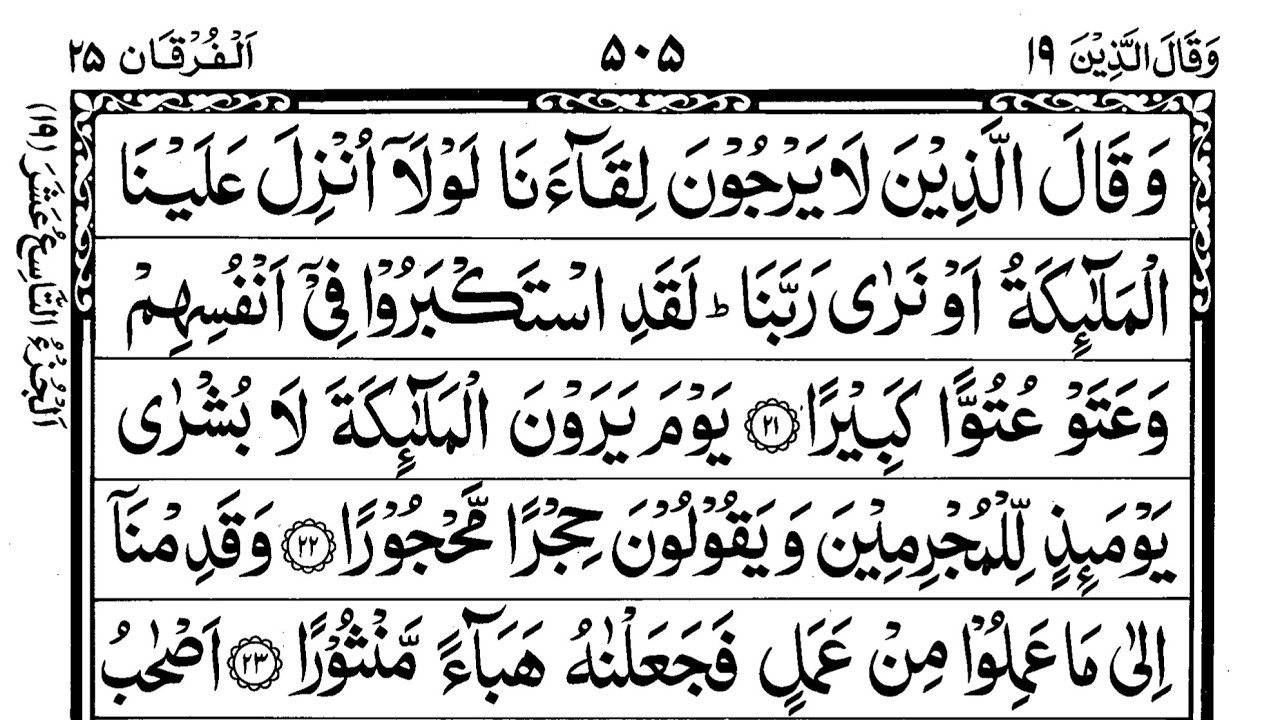 وَقَالَ الَّذِيْنَ ١٩
٥٠٥
اَلْفُرْقَان ٢٥
وَقَالَ الَّذِيْنَ لَا يَرْجُوْنَ لِقَآءَنَا لَوْلَاۤ اُنْزِلَ عَلَيْنَا
الْمَلٰٓئِكَةُ اَوْ نَرٰى رَبَّنَا ؕ لَقَدِ اسْتَكْبَرُوْا فِيْۤ اَنْفُسِهِمْ
وَعَتَوْ عُتُوًّا كَبِيْرًا ﴿٢١﴾ يَوْمَ يَرَوْنَ الْمَلٰٓئِكَةَ لَا بُشْرٰى
يَوْمَئِذٍ لِّلْمُجْرِمِيْنَ وَيَقُوْلُوْنَ حِجْرًا مَّحْجُوْرًا ﴿٢٢﴾ وَقَدِمْنَاۤ
اِلٰى مَا عَمِلُوْا مِنْ عَمَلٍ فَجَعَلْنٰهُ هَبَآءً مَّنْثُوْرًا ﴿٢٣﴾ اَصْحٰبُ
اَلْجُزْءُ التَّاسِعُ عَشَرَ (١٩)